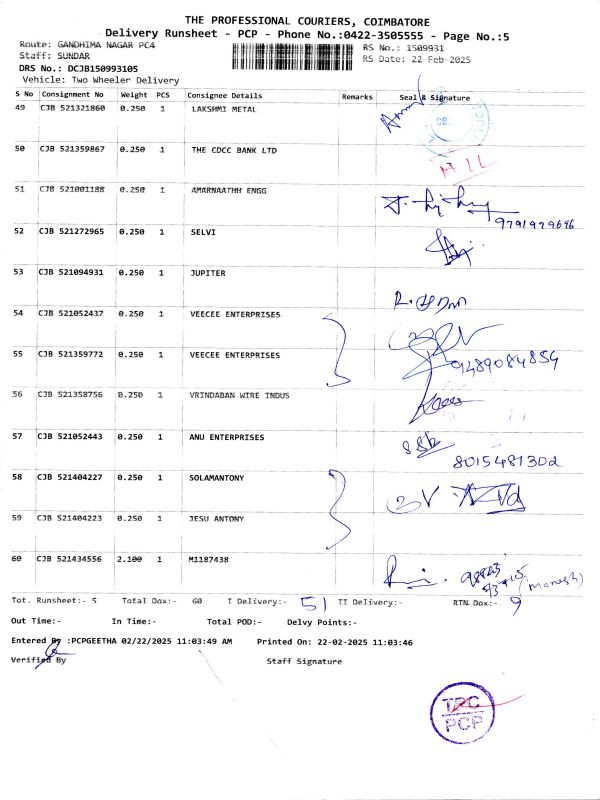 THE PROFESSIONAL COURIERS, COIMBATORE
Delivery Runsheet - PCP - Phone No.:0422-3505555 - Page No.:5
Route: GANDHIMA NAGAR PC4 RS No.: 1509931
Staff: SUNDAR RS Date: 22 Feb-2025
DRS No.: DCJB150993105
Vehicle: Two Wheeler Delivery
S No Consignment No Weight PCS Consignee Details Remarks Seal & Signature
49 CJB 521321860 0.250 1 LAKSHMI METAL
50 CJB 521359867 0.250 1 THE CDCC BANK LTD
51 CJB 521001188 0.250 1 AMARNAATHH ENGG
9791979696
52 CJB 521272965 0.250 1 SELVI
53 CJB 521094931 0.250 1 JUPITER
54 CJB 521052437 0.250 1 VEECEE ENTERPRISES
55 CJB 521359772 0.250 1 VEECEE ENTERPRISES 9489084854
56 CJB 521358756 0.250 1 VRINDABAN WIRE INDUS
57 CJB 521052443 0.250 1 ANU ENTERPRISES
8015481302
58 CJB 521404227 0.250 1 SOLAMANTONY
59 CJB 521404223 0.250 1 JESU ANTONY
60 CJB 521434556 2.100 1 M1187438
(Manesh)
Tot. Runsheet:- 5 Total Dox:- 60 I Delivery:- 51 II Delivery:- RTN Dox:- 9
Out Time:- In Time:- Total POD:- Delvy Points:-
Entered By :PCPGEETHA 02/22/2025 11:03:49 AM Printed On: 22-02-2025 11:03:46
Verified By Staff Signature
TPC
PCP